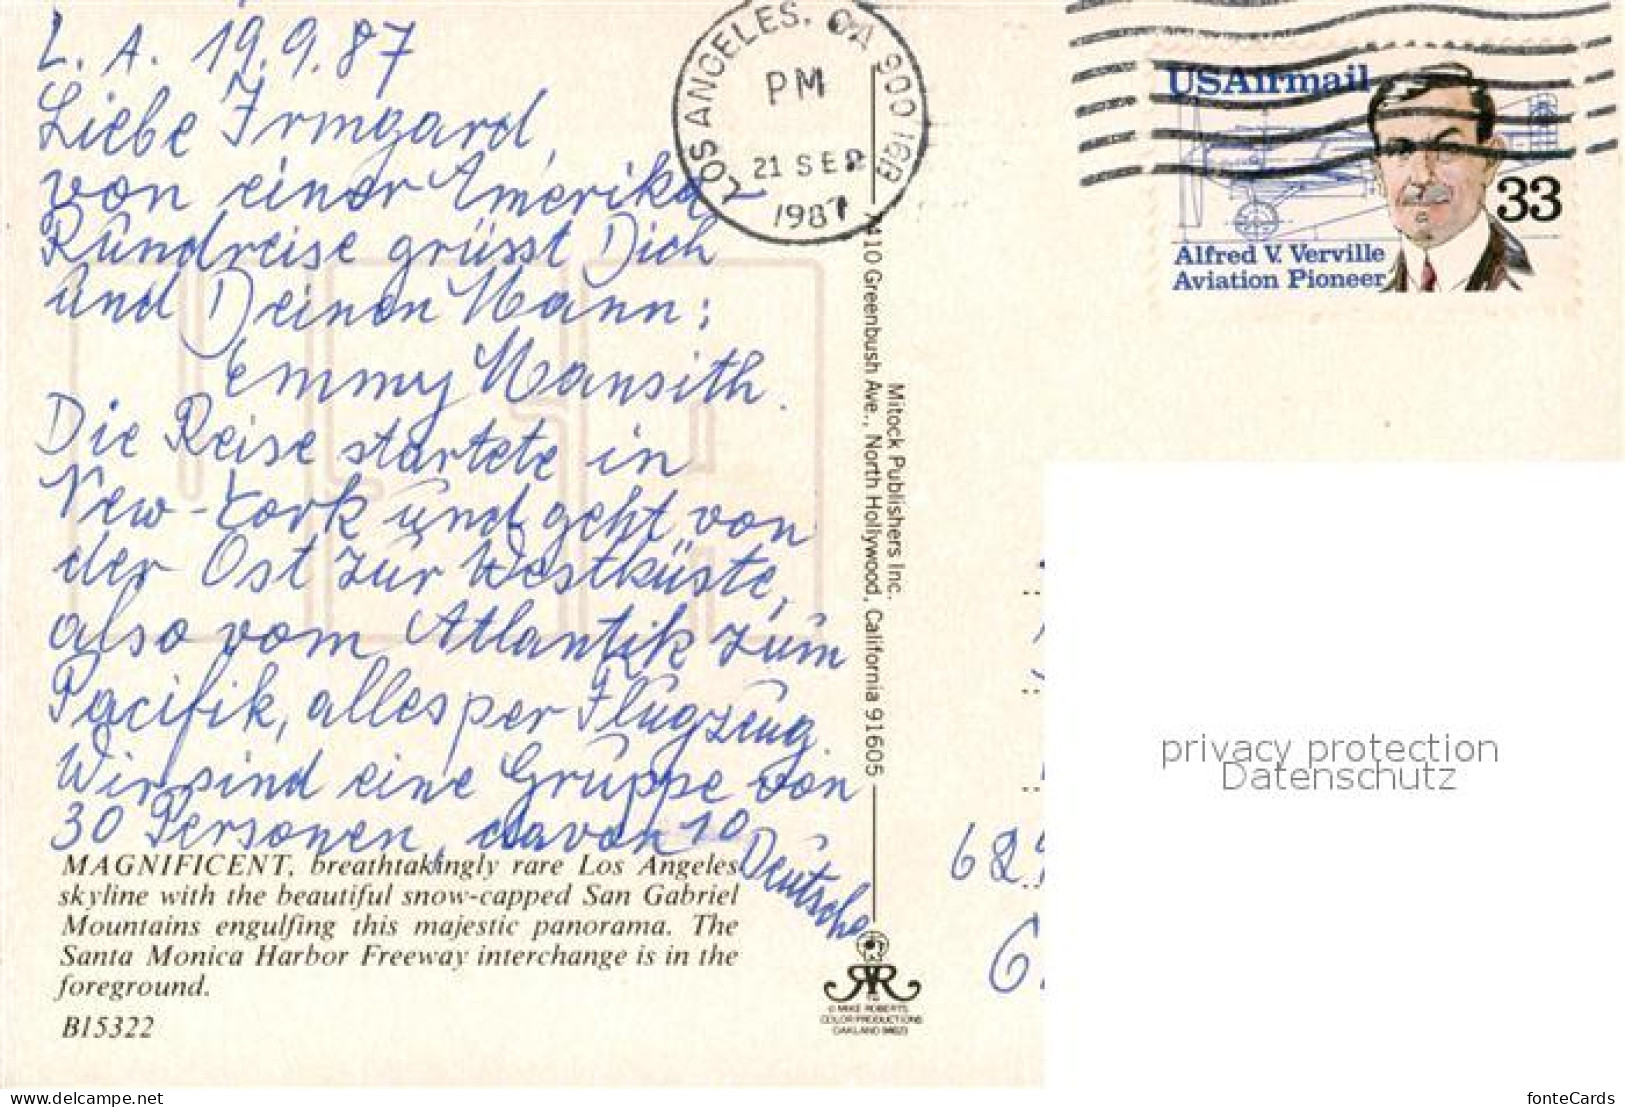 L. A. 19.9.87
Liebe Irmgard,
von einer Amerika
Rundreise grüsst Dich
und Deinen Mann:
Emmy Mansith.
Die Reise startete in
New-York und geht von
der Ost zur Westküste,
also vom Atlantik zum
Pacifik, alles per Flugzeug.
Wir sind eine Gruppe von
30 Personen, davon 10
Deutsche
MAGNIFICENT, breathtakingly rare Los Angeles
skyline with the beautiful snow-capped San Gabriel
Mountains engulfing this majestic panorama. The
Santa Monica Harbor Freeway interchange is in the
foreground.
B15322
LOS ANGELES, CA 900
PM
21 SEP
1987
Mitock Publishers Inc.
Greenbush Ave., North Hollywood, California 91605
© MIKE ROBERTS
COLOR PRODUCTIONS
OAKLAND
USAirmail
33
Alfred V. Verville
Aviation Pioneer
privacy protection
Datenschutz
www.delcampe.net
fonteCards